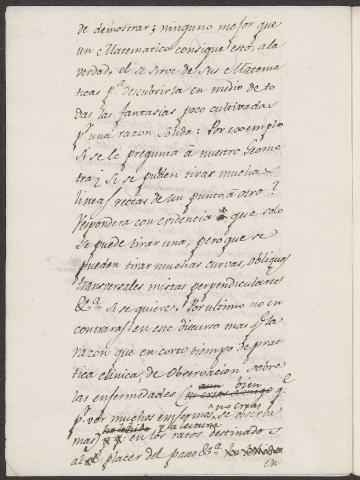 de demostrar; ninguno mejor que
un Matematico consigue esto, a la
verdad, el se sirve de sus Matema
ticas pª descubrirla en medio de to
das las fantasias poco cultivadas
pʳ una razon solida: Por exemplo
Si se le pregunta â nuestro Geome
tra si se pueden tirar muchas
lineas rectas de un punto, â otro?
respondera con evidencia que solo
se puede tirar una, pero que se
pueden tirar muchas curvas, obliquas
transversales mistas perpendiculares
&ª si se quiere. Por ultimo no en
contrara en este discurso mas qᵉ la
razon que en corto tiempo de prac
tica clinica de Observacion sobre
las enfermedades (aun bien qᵉ
pʳ ver muchos enfermos no creas se
mas) y la lectura en los ratos destinados
al placer del paseo &ª
en